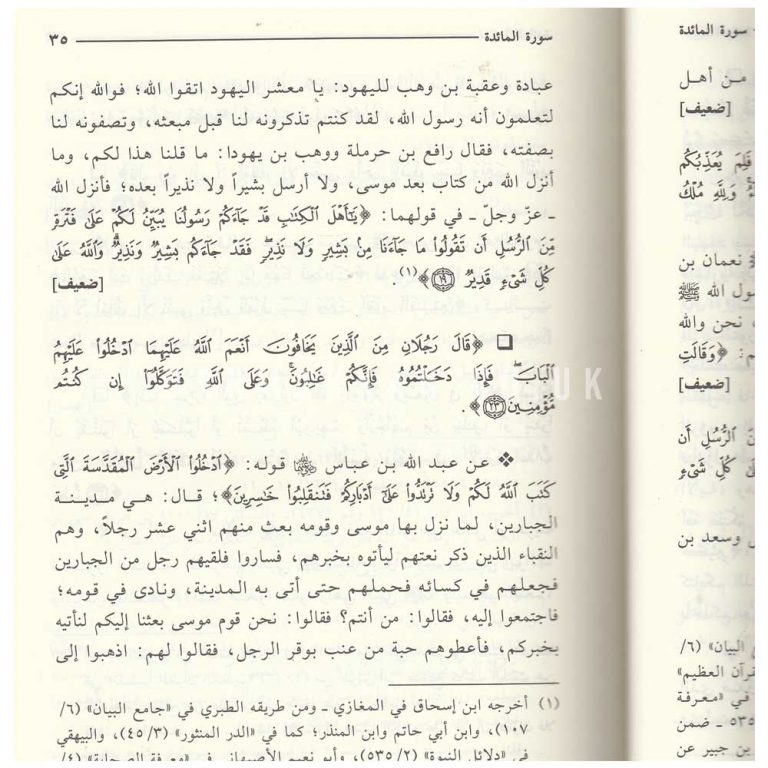 سورة المائدة ٣٥
عبادة وعقبة بن وهب لليهود: يا معشر اليهود اتقوا الله؛ فوالله إنكم
لتعلمون أنه رسول الله، لقد كنتم تذكرونه لنا قبل مبعثه، وتصفونه لنا
بصفته، فقال رافع بن حرملة ووهب بن يهودا: ما قلنا هذا لكم، وما
أنزل الله من كتاب بعد موسى، ولا أرسل بشيراً ولا نذيراً بعده؛ فأنزل الله
ـ عزّ وجلّ ـ في قولهما: ﴿يَٰٓأَهۡلَ ٱلۡكِتَٰبِ قَدۡ جَآءَكُمۡ رَسُولُنَا يُبَيِّنُ لَكُمۡ عَلَىٰ فَتۡرَةٖ
مِّنَ ٱلرُّسُلِ أَن تَقُولُواْ مَا جَآءَنَا مِنۢ بَشِيرٖ وَلَا نَذِيرٖۖ فَقَدۡ جَآءَكُم بَشِيرٞ وَنَذِيرٞۗ وَٱللَّهُ عَلَىٰ
كُلِّ شَيۡءٖ قَدِيرٞ ١٩﴾(١). [ضعيف]
❑ ﴿قَالَ رَجُلَانِ مِنَ ٱلَّذِينَ يَخَافُونَ أَنۡعَمَ ٱللَّهُ عَلَيۡهِمَا ٱدۡخُلُواْ عَلَيۡهِمُ
ٱلۡبَابَ فَإِذَا دَخَلۡتُمُوهُ فَإِنَّكُمۡ غَٰلِبُونَۚ وَعَلَى ٱللَّهِ فَتَوَكَّلُوٓاْ إِن كُنتُم
مُّؤۡمِنِينَ ٢٣﴾.
❖ عن عبد الله بن عباس رضي الله عنهما قوله: ﴿ٱدۡخُلُواْ ٱلۡأَرۡضَ ٱلۡمُقَدَّسَةَ ٱلَّتِي
كَتَبَ ٱللَّهُ لَكُمۡ وَلَا تَرۡتَدُّواْ عَلَىٰٓ أَدۡبَارِكُمۡ فَتَنقَلِبُواْ خَٰسِرِينَ﴾؛ قال: هي مدينة
الجبارين، لما نزل بها موسى وقومه بعث منهم اثني عشر رجلاً، وهم
النقباء الذين ذكر نعتهم ليأتوه بخبرهم، فساروا فلقيهم رجل من الجبارين
فجعلهم في كسائه فحملهم حتى أتى به المدينة، ونادى في قومه؛
فاجتمعوا إليه، فقالوا: من أنتم؟ فقالوا: نحن قوم موسى بعثنا إليكم لنأتيه
بخبركم، فأعطوهم حبة من عنب بوقر الرجل، فقالوا لهم: اذهبوا إلى
(١) أخرجه ابن إسحاق في المغازي ـ ومن طريقه الطبري في «جامع البيان» (٦/
١٠٧)، وابن أبي حاتم وابن المنذر؛ كما في «الدر المنثور» (٣/ ٤٥)، والبيهقي
في «دلائل النبوة» (٢/ ٥٣٥)، وأبو نعيم الأصبهاني في «معرفة الصحابة» (٤/
سورة المائدة
من أهل
[ضعيف]
فَلِمَ يُعَذِّبُكُم
وَلِلَّهِ مُلۡكُ
نعمان بن
ول الله ﷺ
، نحن والله
م: ﴿وَقَالَتِ
[ضعيف]
نَ ٱلرُّسُلِ أَن
كُلِّ شَيۡءٖ
وسعد بن
البيان» (٦/
قرآن العظيم»
في «معرفة
٥٣٥ ـ ضمن
بن جبير عن
UK